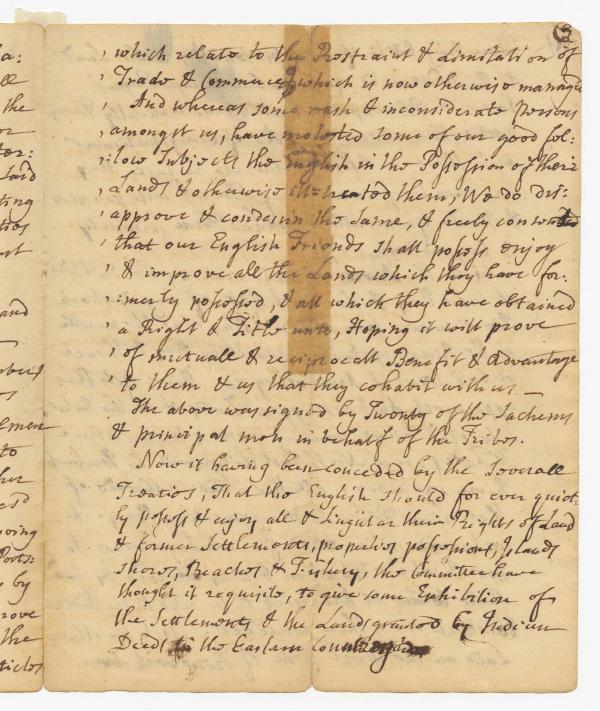 which relate to the Restraint & Limitation of
Trade & Commerce, which is now otherwise managed
And whereas some rash & inconsiderate Persons
amongst us, have molested some of our good fel:
:low Subjects the English in the Possession of their
Lands & otherwise ill=treated them, We do dis:
approve & condemn the same, & freely consent
that our English Friends shall possess enjoy
& improve all the Lands which they have for:
:merly possessed, & all which they have obtained
a Right & Title unto, Hoping it will prove
of mutuall & reciprocall Benefit & Advantage
to them & us that they cohabit with us_
The above was signed by Twenty of the Sachems
& principal men in behalf of the Tribes.
Now it having been conceded by the Severall
Treaties, That the English should for ever quiet:
ly possess & enjoy all & singular their Rights of Land
& former Settlements, properties possessions, Islands
shores, Beaches & Fishery, the Committee have
thought it requisite, to give some Exhibition of
the Settlements & the Lands granted by Indian
Deeds in the Eastern